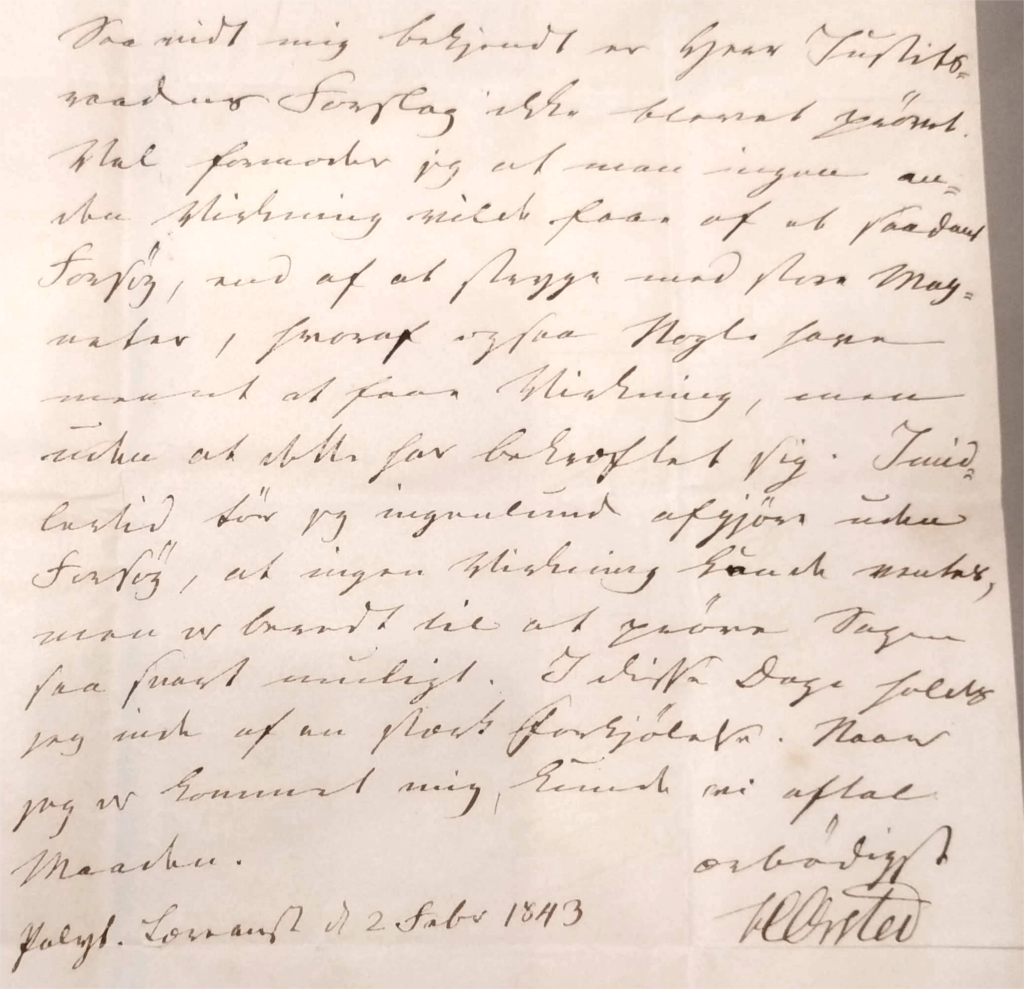 Saavidt mig bekjendt er Herr Justits-
raadens Forslag ikke blevet prövet.
Vel formoder jeg at man ingen an-
den Virkning vilde faae af et saadant
Forsög, end af at stryge med store Mag-
neter, hvoraf ogsaa Nogle have
meent at faae Virkning, men
uden at dette har bekræftet sig. Imid-
lertid tör jeg ingenlunde afgjöre uden
Forsög, at ingen Virkning kunde ventes,
men er beredt til at pröve Sagen
saa snart muligt. I disse Dage holdes
jeg inde af en stærk Forkjölelse. Naar
jeg er kommet mig, kunde vi aftale
Maaden.
ærbödigst
Polyt. Læreanst d 2 Febr 1843
HCØrsted